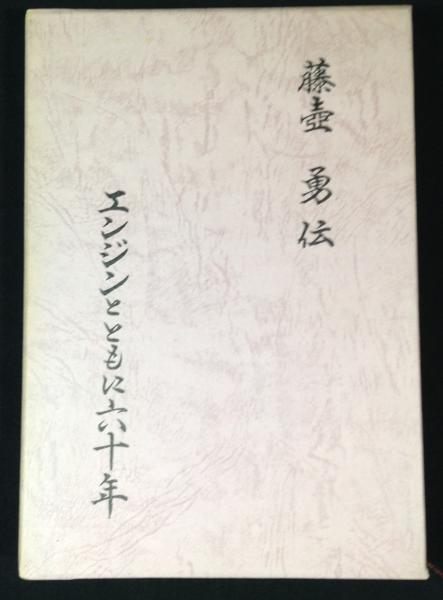 藤壺 勇伝
エンジンとともに六十年